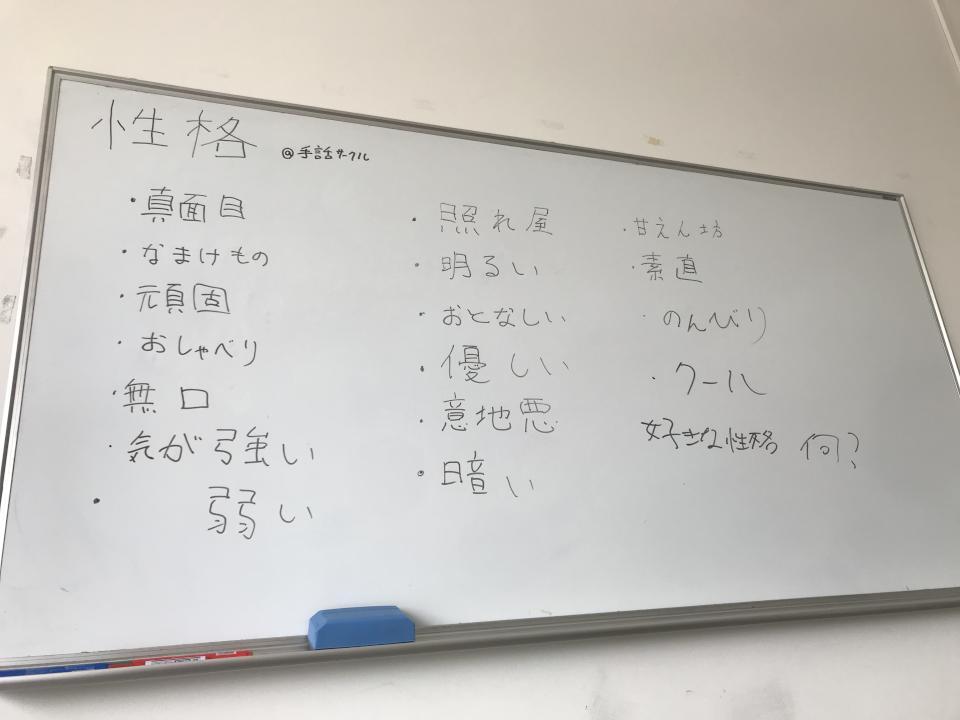 性格 @手話サークル
・真面目
・なまけもの
・頑固
・おしゃべり
・無口
・気が強い
・ 弱い
・照れ屋
・明るい
・おとなしい
・優しい
・意地悪
・暗い
・甘えん坊
・素直
・のんびり
・クール
好きな性格 何?